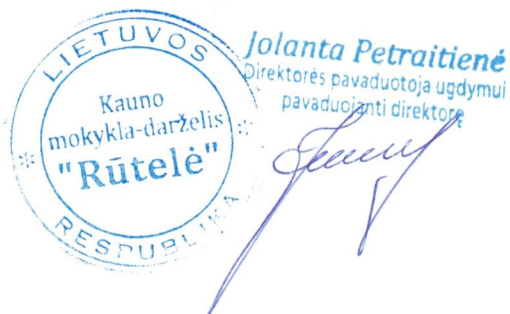 LIETUVOS
RESPUBLIKA
Kauno
mokykla-darželis
"Rūtelė"
Jolanta Petraitienė
Direktorės pavaduotoja ugdymui
pavaduojanti direktorę